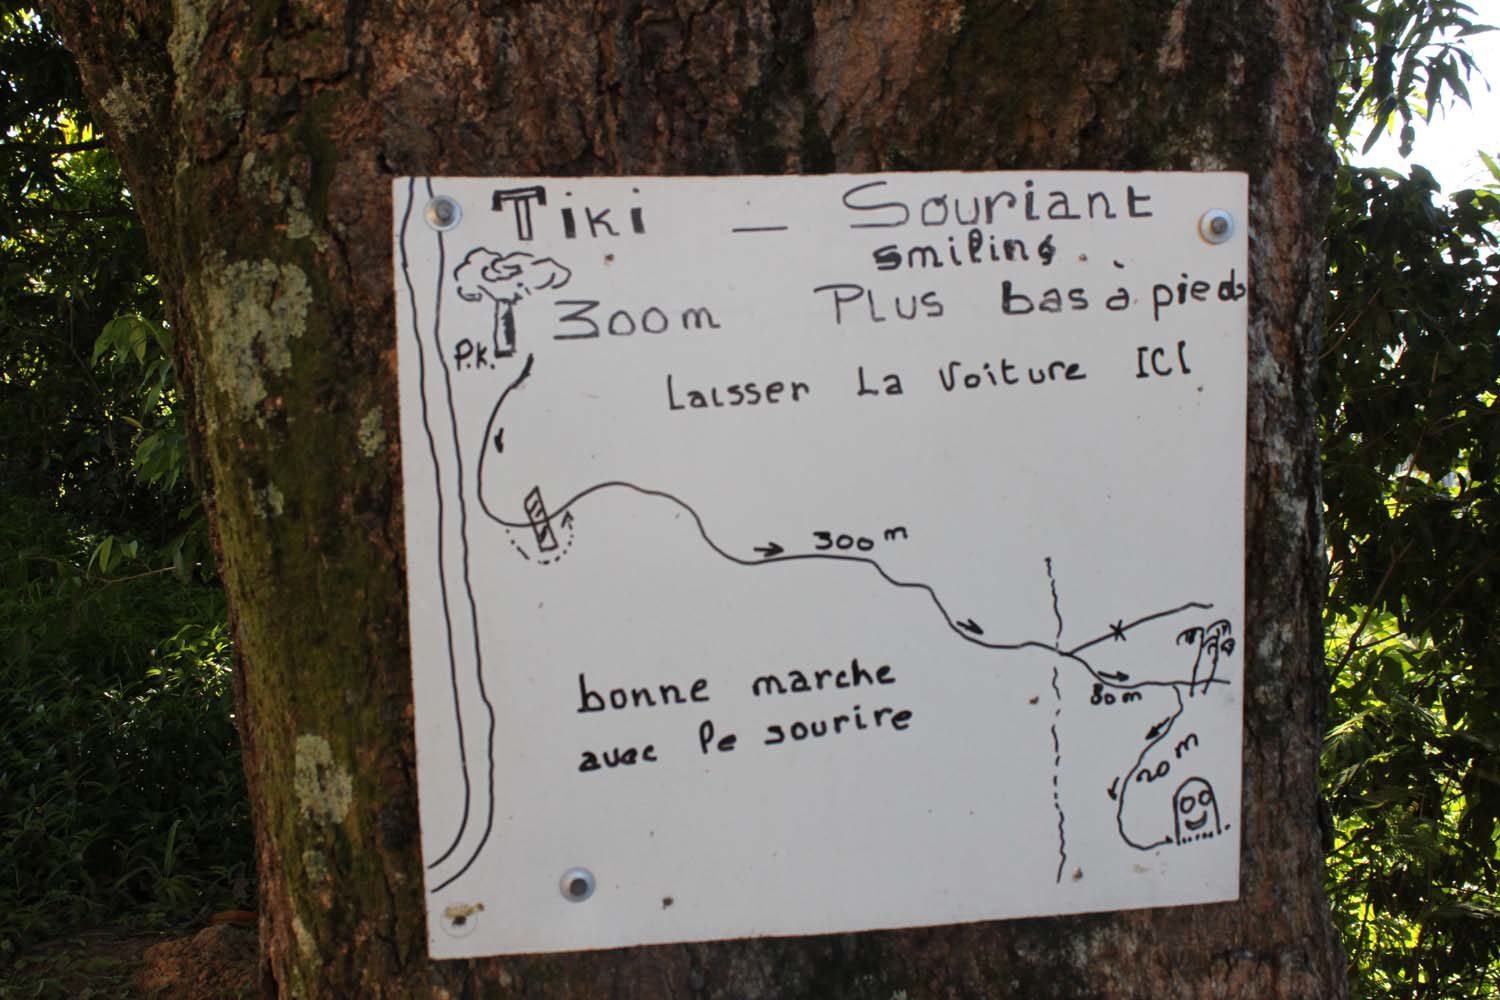 Tiki — Souriant
smiling
300m Plus bas à pieds
P.K.
Laisser La Voiture ICI
300 m
80m
bonne marche
avec le sourire
20 m